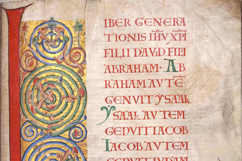 IBER GENERA
TIONIS IHV XPI
FILII DAVID FILII
ABRAHAM · AB
RAHAM AVTE
GENVIT YSAAK
YSAAK AVTEM
GENVIT IACOB
IACOB AVTEM
GENVIT IVDAM